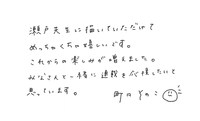 瀬戸先生に描いていただけて
めっちゃくちゃ嬉しいです。
これからの楽しみが増えました。
みなさんと一緒に連載を応援したいと
思っています。
町田